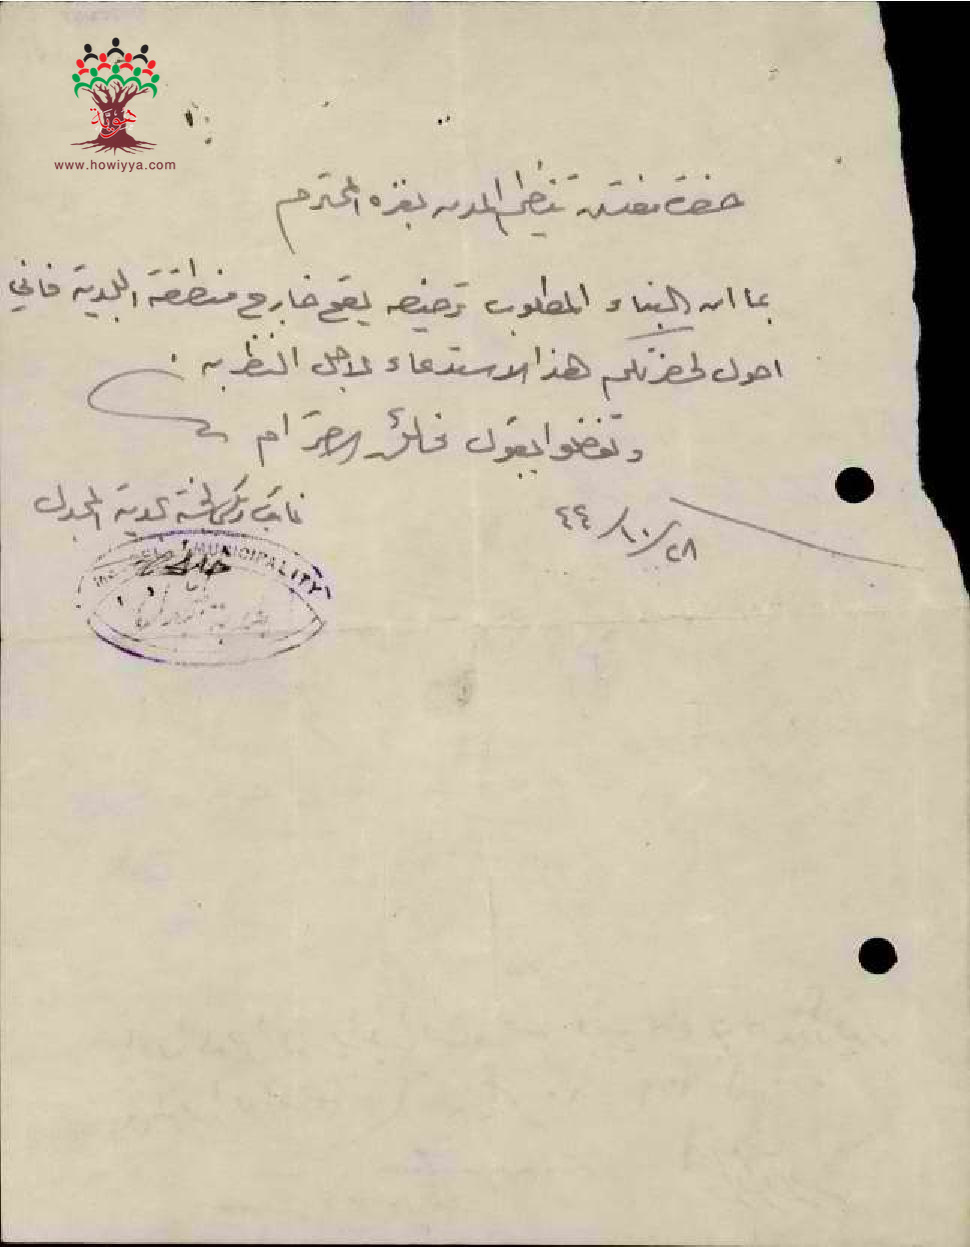 هوية
www.howiyya.com
حضرة مفتش تنظيم المدن بغزه المحترم
بما ان البناء المطلوب ترخيصه يقع خارج منطقة البلدية فاني
احول لحضرتكم هذا الاستدعاء لاجل النظر به .
وتفضلوا بقبول فائق الاحترام
٢٨/١٠/٤٤
نائب رئيس لجنة بلدية المجدل
MUNICIPALITY
بلدية المجدل